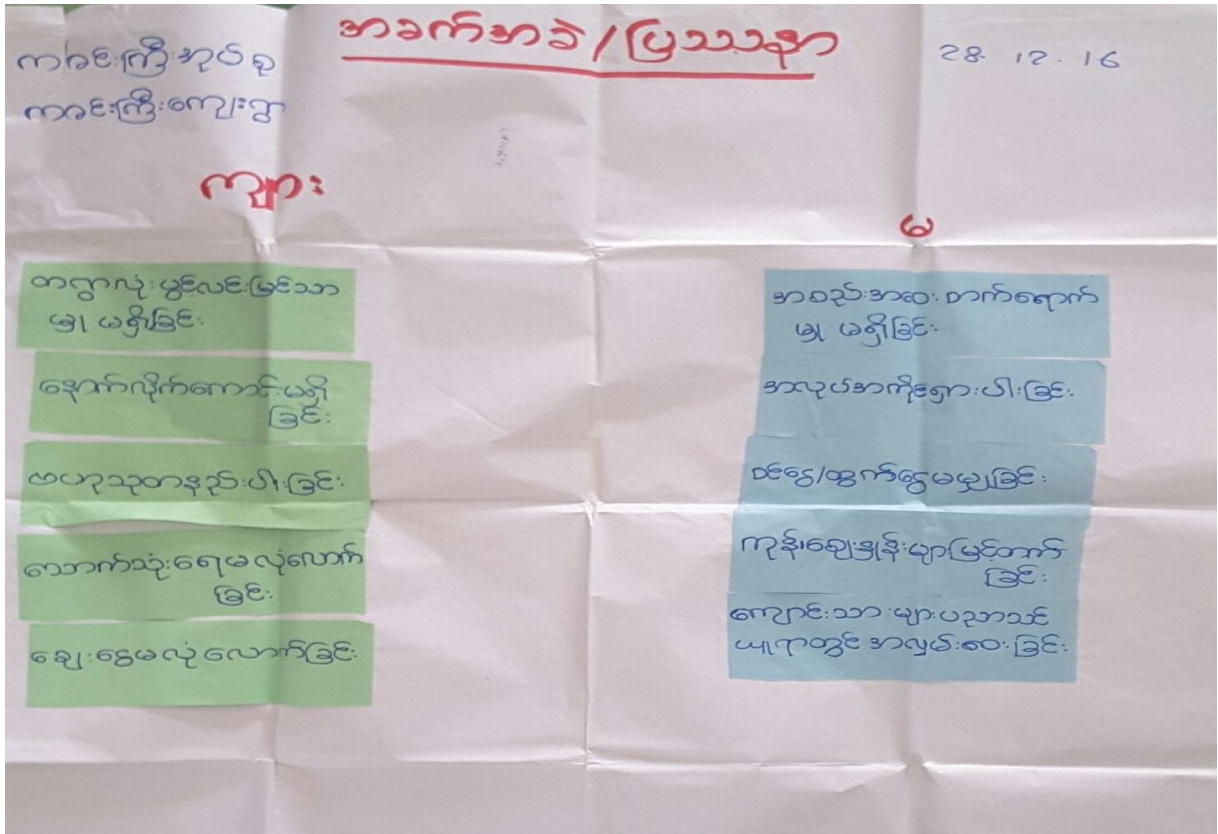 အခက်အခဲ/ပြဿနာ
28. 12. 16
ကခင်းကြီးအုပ်စု
ကခင်းကြီးကျေးရွာ
ကျား
တရွာလုံးပွင့်လင်းမြင်သာ
မှု မရှိခြင်း
နောက်လိုက်ကောင်းမရှိ
ခြင်း
ဗဟုသုတနည်းပါးခြင်း
သောက်သုံးရေမလုံလောက်
ခြင်း
ချေးငွေမလုံလောက်ခြင်း
မ
အစည်းအဝေးတက်ရောက်
မှု မရှိခြင်း
အလုပ်အကိုင်ရှားပါးခြင်း
ဝင်ငွေ/ထွက်ငွေမမျှခြင်း
ကုန်ဈေးနှုန်းများမြင့်တက်
ခြင်း
ကျောင်းသားများပညာသင်
ယူရာတွင်အလှမ်းဝေးခြင်း